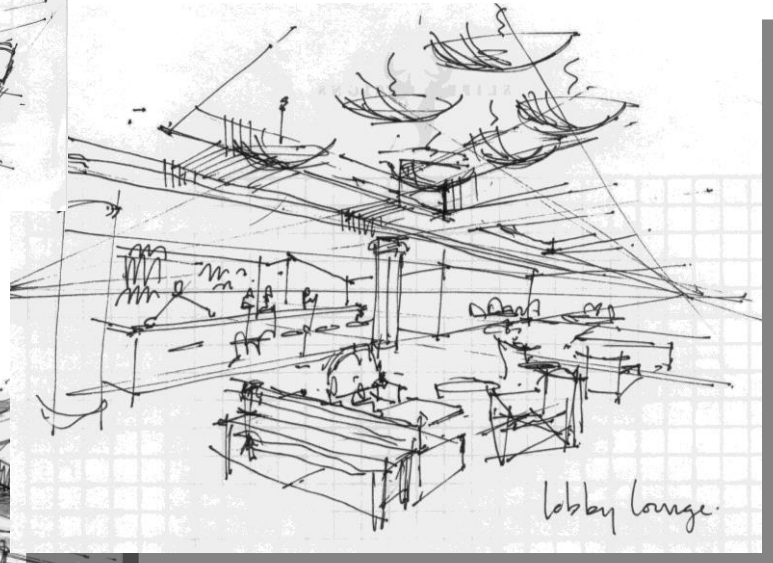 lobby lounge.